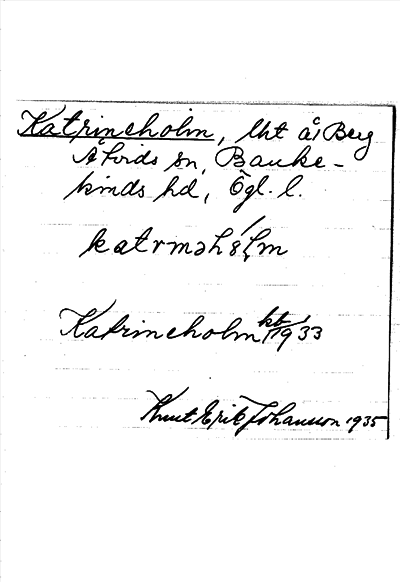 Katrineholm, lht å, Berg
Åtvids sn, Banke-
kinds hd, Ögl. l.
katrməhólm
Katrineholm kb 1933
Knut Erik Johansson 1935